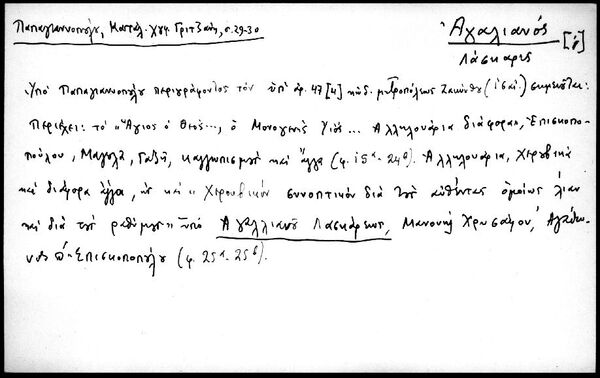 Παπαγιαννοπούλου, Καταλ. χφ. Γριτζάνη, σ. 29-30
Ἀγαλιανός [ἢ]
Λάσκαρις
Ὑπὸ Παπαγιαννοπούλου περιγράφοντος τὸν ὑπ' ἀρ. 47 [4] κώδ. μητροπόλεως Ζακύνθου (ιςʹ αἰ.) σημειοῦται:
Περιέχει: τὸ "Ἅγιος ὁ Θεός..., ὁ Μονογενὴς Υἱός... Ἀλληλουάρια διάφορα, Ἐπισκοπο-
πούλου, Μαγουλᾶ, Γαζῆ, καλλωπισμοὶ καὶ ἄλλα (φ. 15α-24β). Ἀλληλουάρια, Χερουβικὰ
καὶ διάφορα ἄλλα, ὡς καὶ "Χερουβικὸν συνοπτικὸν διὰ τοὺς αὐθέντας ὁμοίως λίαν
καὶ διὰ τοὺς ῥαθύμους" ὑπὸ Ἀγαλλιανοῦ Λασκάρεως, Μανουὴλ Χρυσάφου, Ἀγάθω-
νος Ἐπισκοποπούλου (φ. 25α-25β).